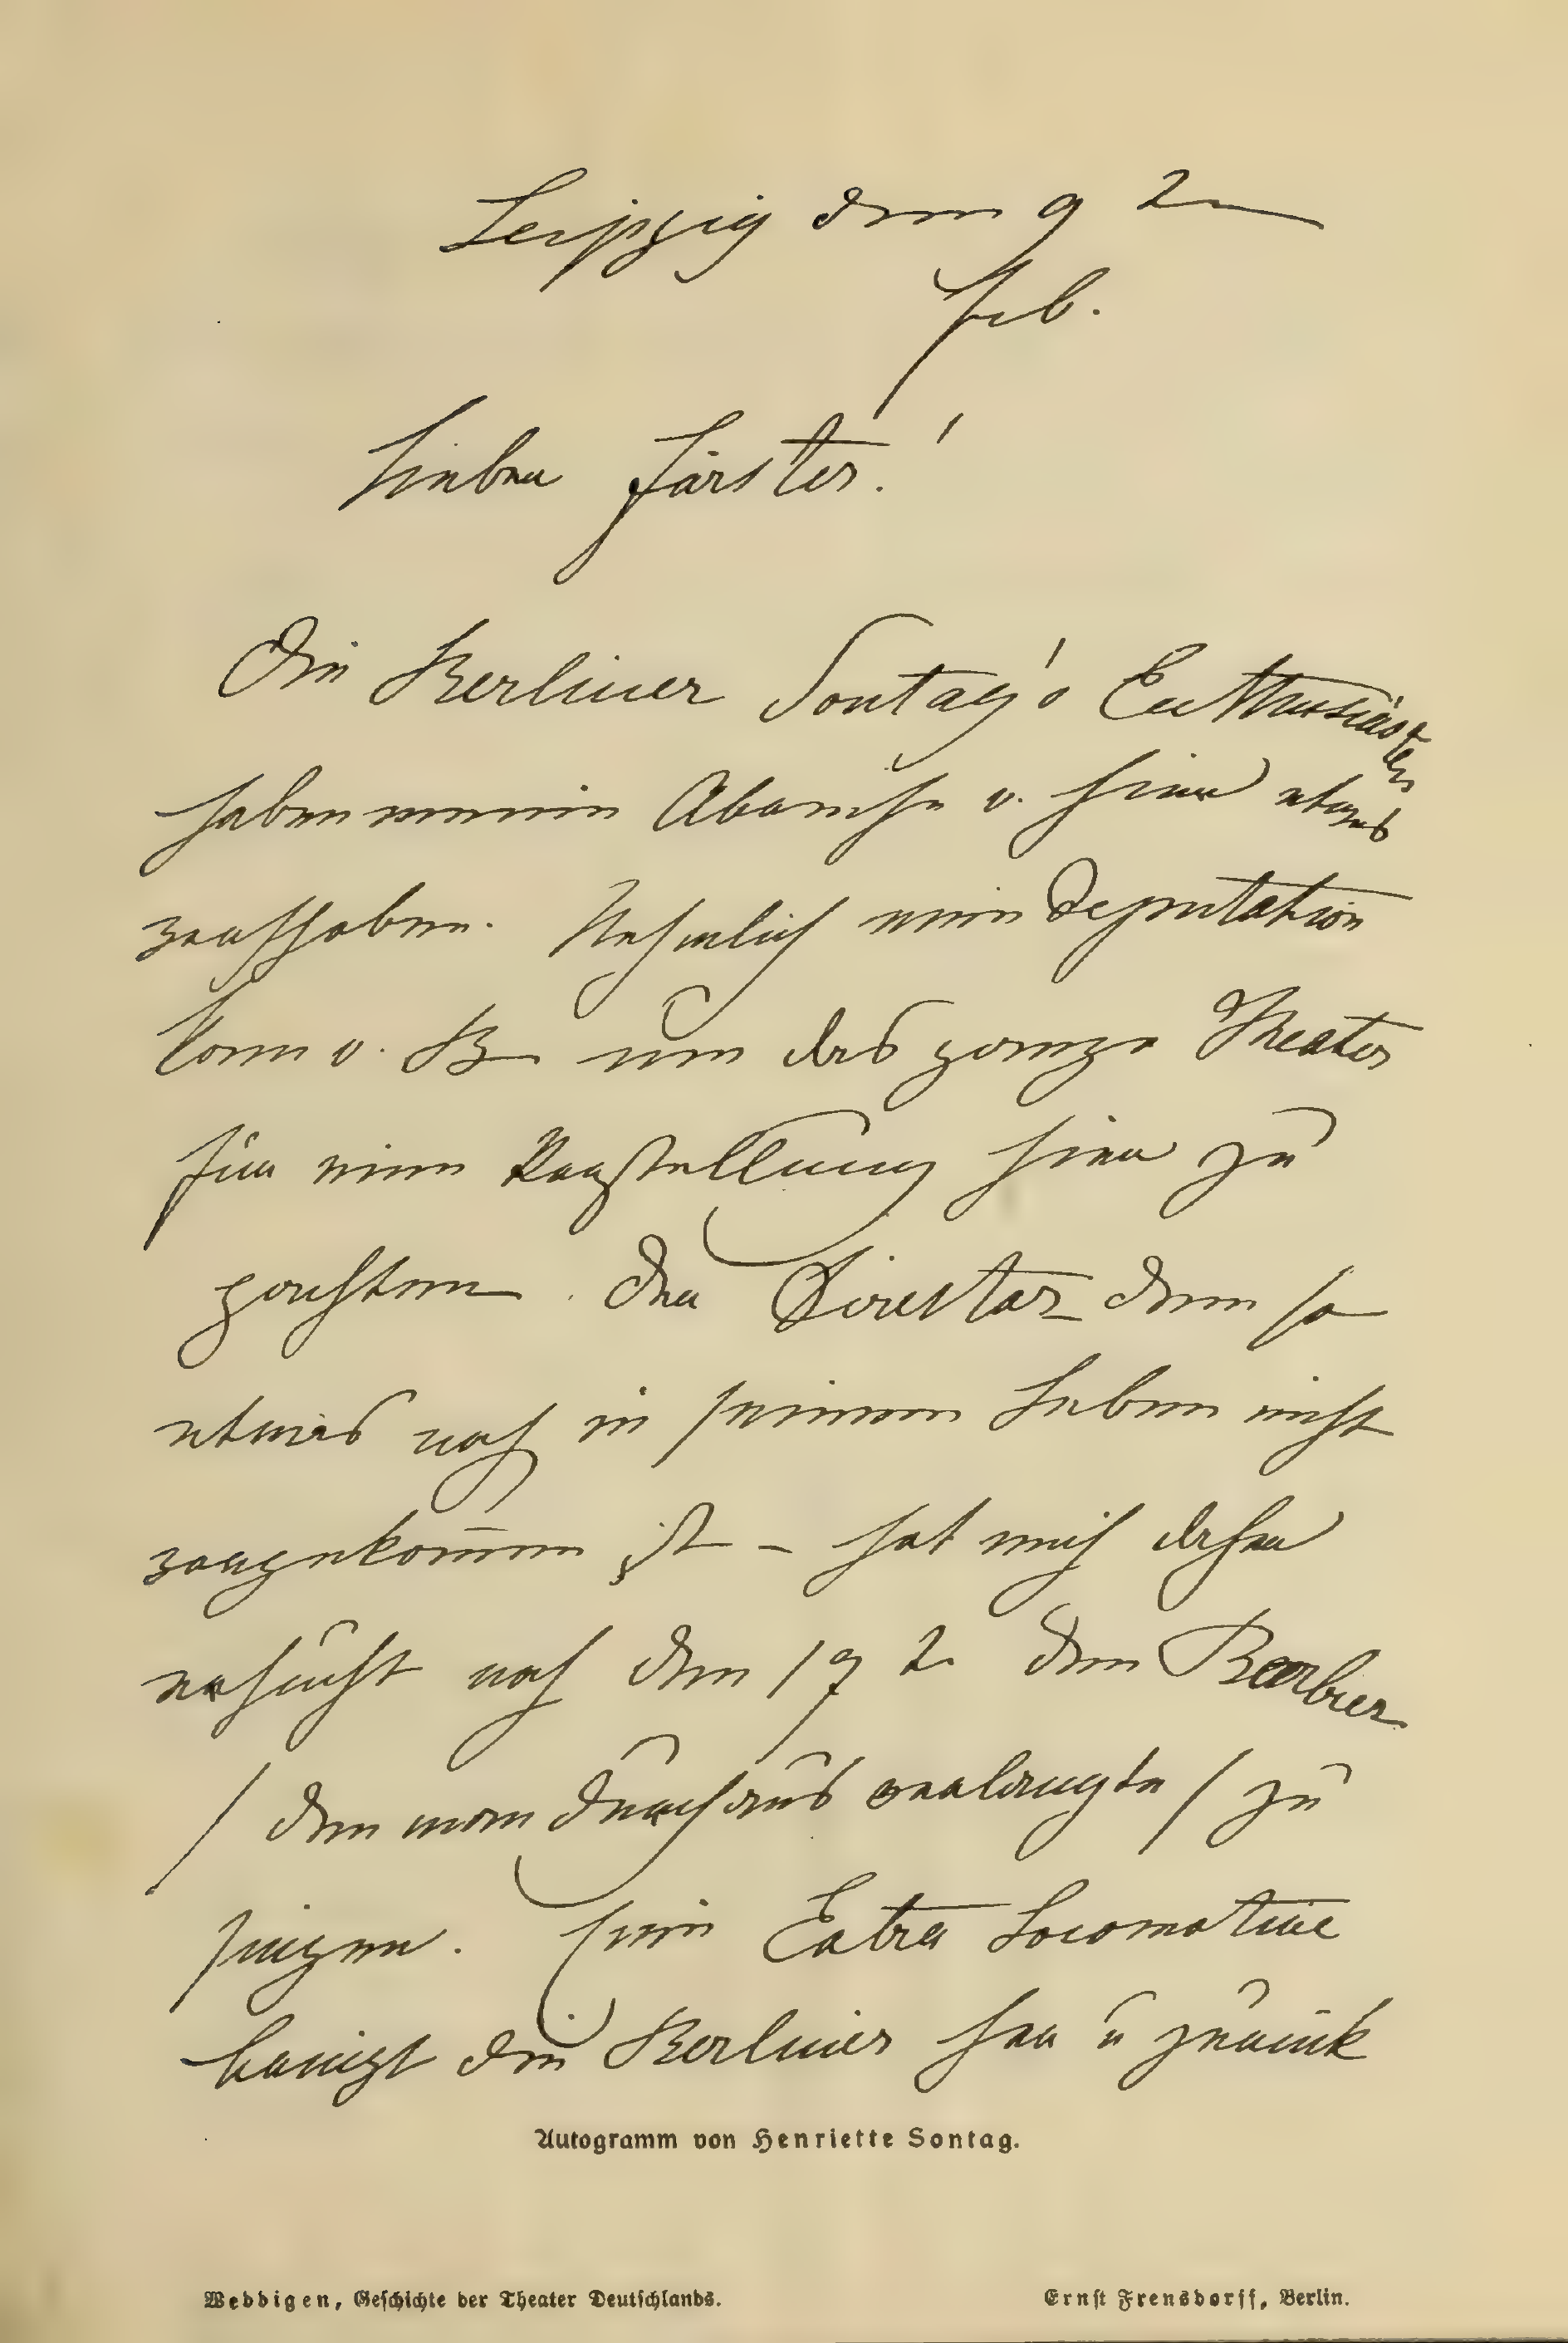 Leipzig den 9 2
Feb.
Lieber Förster!
Die Berliner Sontag's Enthusiasten
haben meine Abreise v. hier etwas
verschoben. Nehmlich eine Deputation
kam v. B um das ganze Theater
für eine Vorstellung hier zu
pachten. Der Director dem so
etwas noch in seinem Leben nicht
vorgekom̄en ist – hat mich daher
ersucht noch den 17 2. den Barbier
/ den man durchaus verlangte / zu
singen. Eine Extra Locomotive
bringt die Berliner her u zurück
Autogramm von Henriette Sontag.
Weddigen, Geschichte der Theater Deutschlands.
Ernst Frensdorff, Berlin.